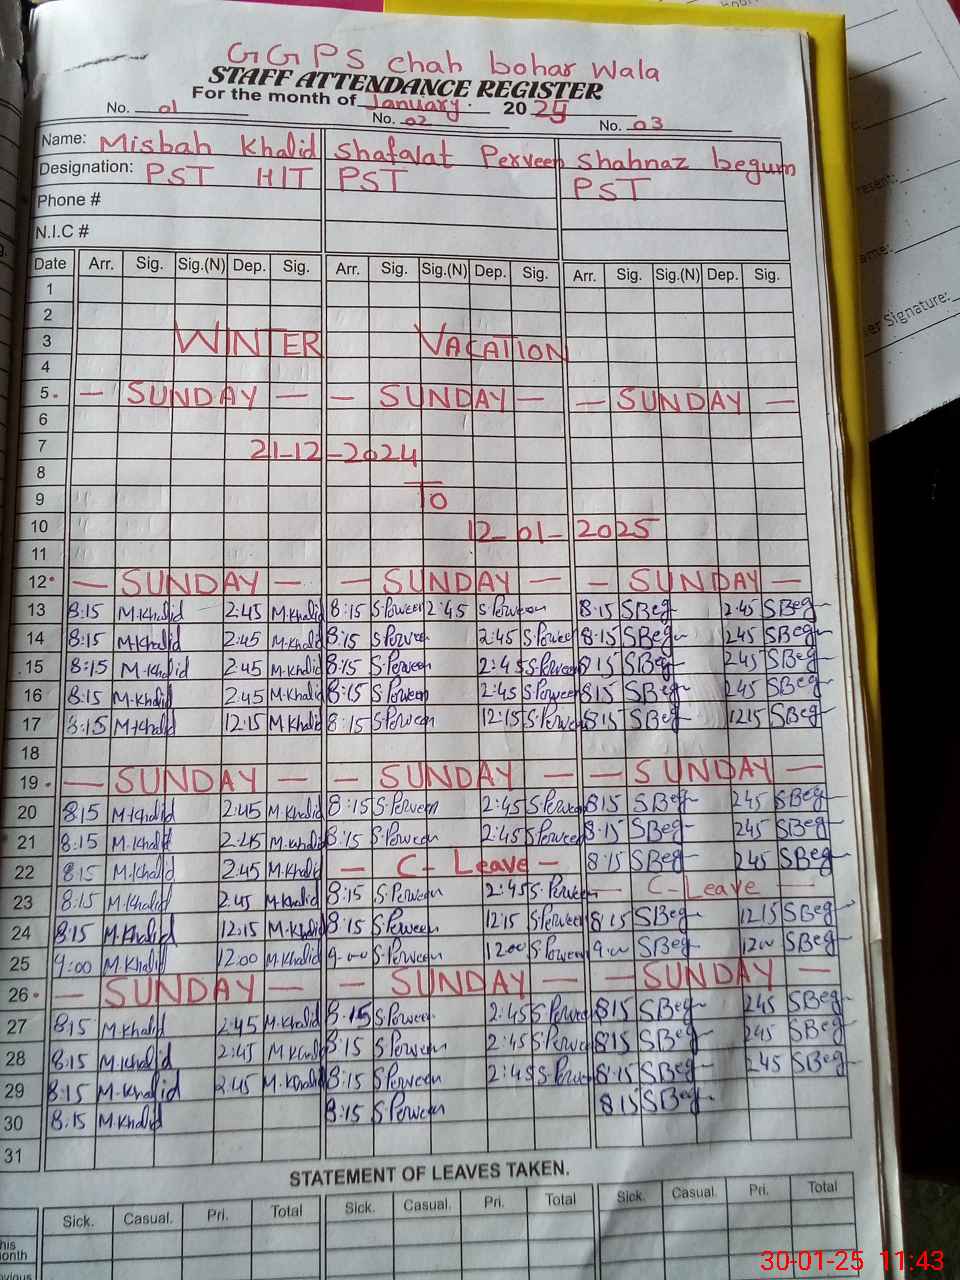 GGPS chah bohar wala
STAFF ATTENDANCE REGISTER
For the month of January. 2025
No. 01 No. 02 No. 03
Name: Misbah Khalid Shafalat Perveen Shahnaz begum
Designation: PST HIT PST PST
Phone #
N.I.C #
Date Arr. Sig. Sig.(N) Dep. Sig. Arr. Sig. Sig.(N) Dep. Sig. Arr. Sig. Sig.(N) Dep. Sig.
1
2
3 WINTER VACATION
4
5. - SUNDAY - - SUNDAY - - SUNDAY -
6
7 21-12-2024
8
9 To
10 12-01-2025
11
12. - SUNDAY - - SUNDAY - - SUNDAY -
13 8:15 M.Khalid 2:45 M.Khalid 8:15 S.Perveen 2:45 S.Perveen 8:15 SBeg 2:45 SBeg
14 8:15 M.Khalid 2:45 M.Khalid 8:15 S.Perveen 2:45 S.Perveen 8:15 SBeg 2:45 SBeg
15 8:15 M.Khalid 2:45 M.Khalid 8:15 S.Perveen 2:45 S.Perveen 8:15 SBeg 2:45 SBeg
16 8:15 M.Khalid 2:45 M.Khalid 8:15 S.Perveen 2:45 S.Perveen 8:15 SBeg 2:45 SBeg
17 8:15 M.Khalid 12:15 M.Khalid 8:15 S.Perveen 12:15 S.Perveen 8:15 SBeg 1215 SBeg
18
19. - SUNDAY - - SUNDAY - - SUNDAY -
20 8:15 M.Khalid 2:45 M.Khalid 8:15 S.Perveen 2:45 S.Perveen 8:15 SBeg 245 SBeg
21 8:15 M.Khalid 2:45 M.Khalid 8:15 S.Perveen 2:45 S.Perveen 8:15 SBeg 245 SBeg
22 8:15 M.Khalid 2:45 M.Khalid - C-Leave - 8:15 SBeg 245 SBeg
23 8:15 M.Khalid 2:45 M.Khalid 8:15 S.Perveen 2:45 S.Perveen - C-Leave -
24 8:15 M.Khalid 12:15 M.Khalid 8:15 S.Perveen 12:15 S.Perveen 8:15 SBeg 1215 SBeg
25 9:00 M.Khalid 12:00 M.Khalid 9:00 S.Perveen 12:00 S.Perveen 9:00 SBeg 1200 SBeg
26. - SUNDAY - - SUNDAY - - SUNDAY -
27 8:15 M.Khalid 2:45 M.Khalid 8:15 S.Perveen 2:45 S.Perveen 8:15 SBeg 245 SBeg
28 8:15 M.Khalid 2:45 M.Khalid 8:15 S.Perveen 2:45 S.Perveen 8:15 SBeg 245 SBeg
29 8:15 M.Khalid 2:45 M.Khalid 8:15 S.Perveen 2:45 S.Perveen 8:15 SBeg 245 SBeg
30 8:15 M.Khalid 8:15 S.Perveen 815 SBeg
31
STATEMENT OF LEAVES TAKEN.
Sick. Casual. Pri. Total Sick. Casual. Pri. Total Sick. Casual. Pri. Total
er Signature:
30-01-25 11:43